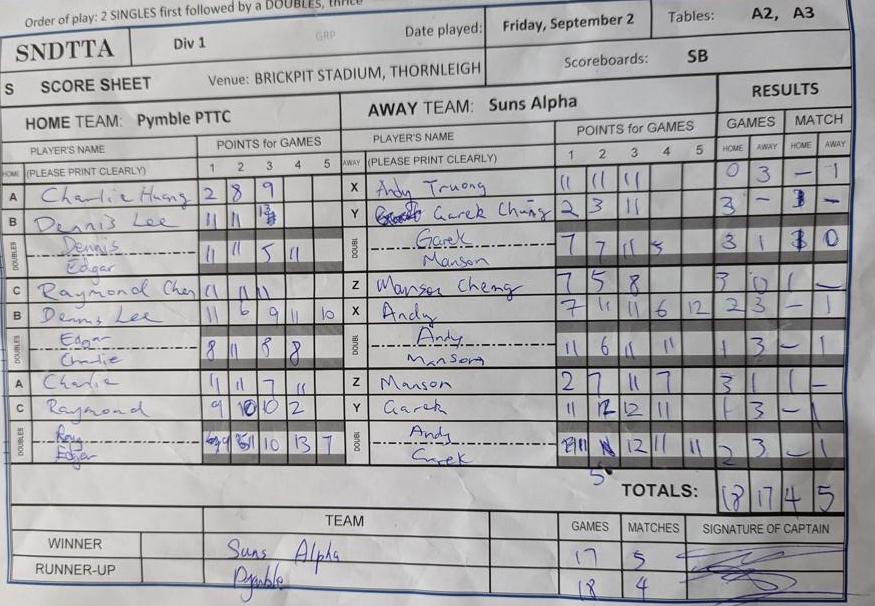 Order of play: 2 SINGLES first followed by a DOUBLES, thrice
SNDTTA Div 1 GRP Date played: Friday, September 2 Tables: A2, A3
S SCORE SHEET Venue: BRICKPIT STADIUM, THORNLEIGH Scoreboards: SB
HOME TEAM: Pymble PTTC AWAY TEAM: Suns Alpha RESULTS
PLAYER'S NAME POINTS for GAMES PLAYER'S NAME POINTS for GAMES GAMES MATCH
HOME (PLEASE PRINT CLEARLY) 1 2 3 4 5 AWAY (PLEASE PRINT CLEARLY) 1 2 3 4 5 HOME AWAY HOME AWAY
A Charlie Huang 2 8 9 X Andy Truong 11 11 11 0 3 - 1
B Dennis Lee 11 11 13 Y Garek Chung 2 3 11 3 - -
DOUBLES Dennis 11 11 5 11 DOUBL Garek 7 7 11 5 3 1 0
Edgar Manson
C Raymond Chen 11 11 11 Z Manson Cheng 7 5 8 3 0 1 -
B Dennis Lee 11 6 9 11 10 X Andy 7 11 11 6 12 2 3 - 1
DOUBLES Edgar 8 11 8 8 DOUBL Andy 11 6 11 11 1 3 - 1
Charlie Manson
A Charlie 11 11 7 11 Z Manson 2 7 11 7 3 1 1 -
C Raymond 9 10 10 2 Y Garek 11 12 12 11 1 3 - 1
DOUBLES Ray 9 11 10 13 7 DOUBL Andy 11 12 11 11 2 3 - 1
Edgar Garek
5
TOTALS: 18 17 4 5
TEAM GAMES MATCHES SIGNATURE OF CAPTAIN
WINNER Suns Alpha 17 5
RUNNER-UP Pymble 18 4